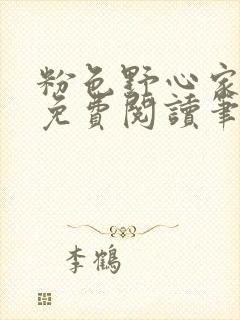 粉色野心家
免費閱讀筆
李鶴